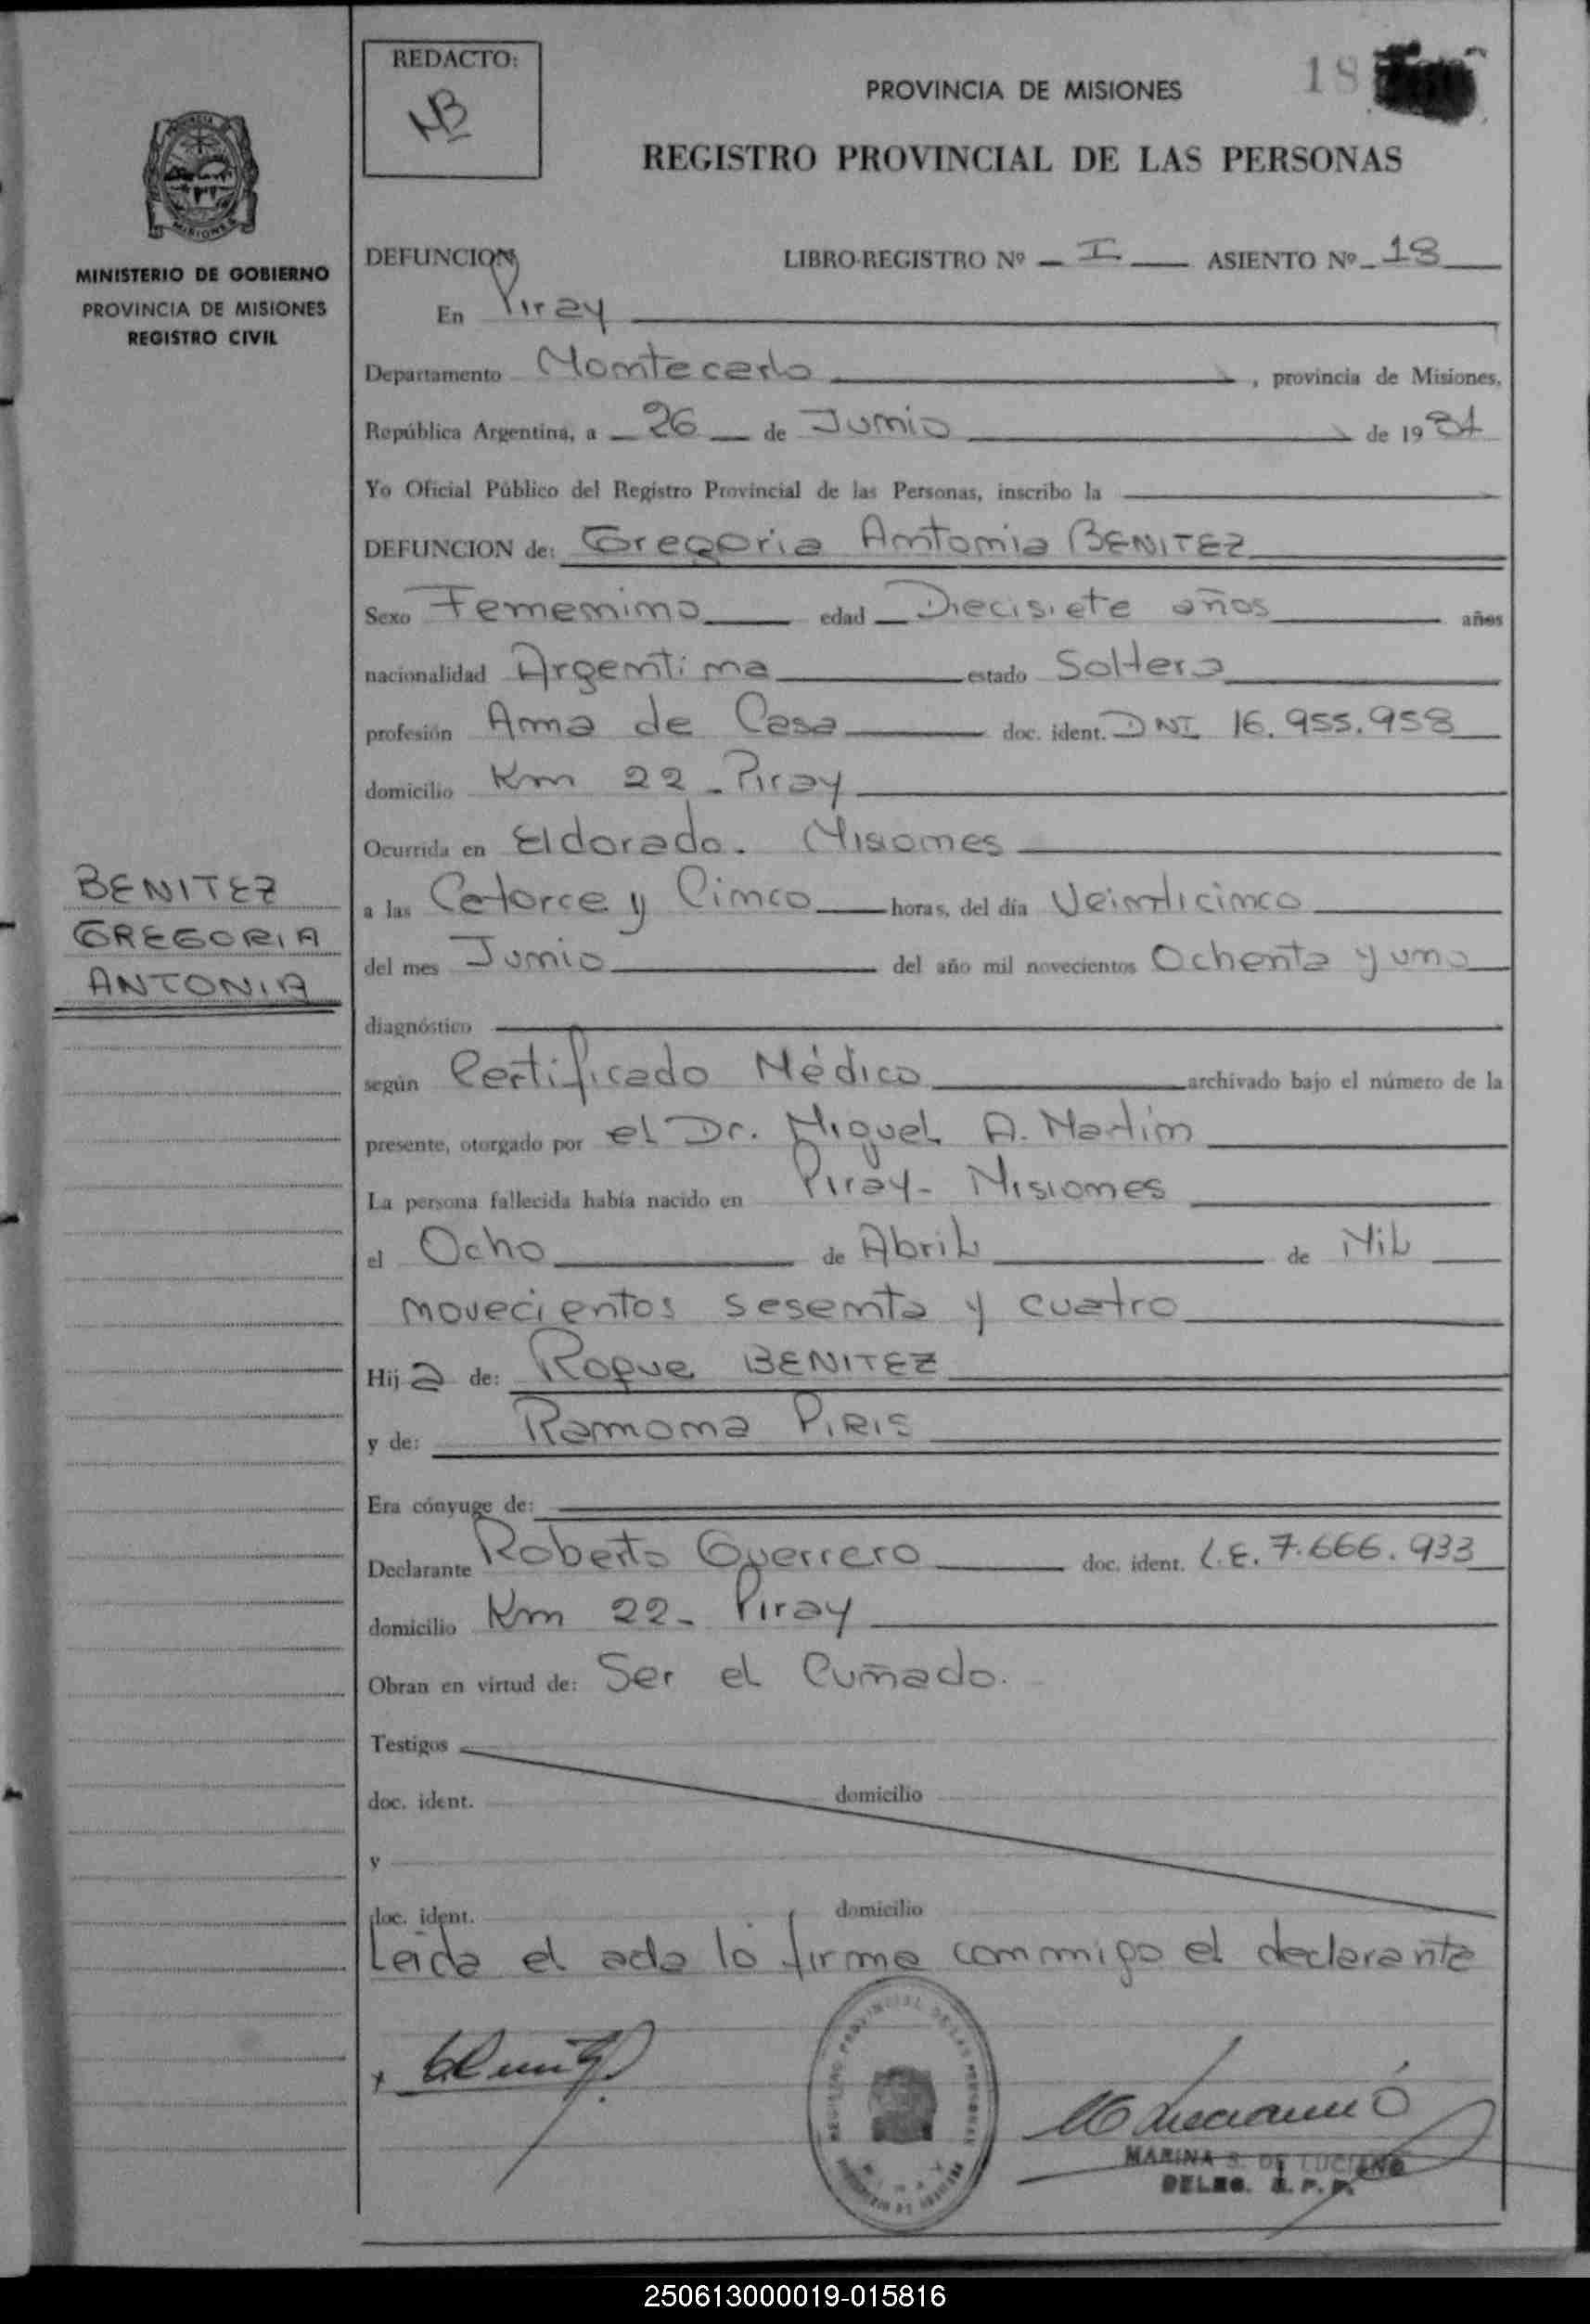 REDACTO:
NB
PROVINCIA DE MISIONES
18
REGISTRO PROVINCIAL DE LAS PERSONAS
MISIONES
MINISTERIO DE GOBIERNO
PROVINCIA DE MISIONES
REGISTRO CIVIL
DEFUNCION LIBRO-REGISTRO Nº I ASIENTO Nº 18
En Piray
Departamento Montecarlo, provincia de Misiones,
República Argentina, a 26 de Junio de 1981
Yo Oficial Público del Registro Provincial de las Personas, inscribo la
DEFUNCION de: Gregoria Antonia BENITEZ
Sexo Femenino edad Diecisiete años años
nacionalidad Argentina estado Soltera
profesión Ama de Casa doc. ident. DNI 16.955.958
domicilio Km 22 - Piray
Ocurrida en Eldorado. Misiones
BENITEZ
GREGORIA
ANTONIA
a las Catorce y Cinco horas, del día Veinticinco
del mes Junio del año mil novecientos Ochenta y uno
diagnóstico
según Certificado Médico archivado bajo el número de la
presente, otorgado por el Dr. Miguel A. Martin
La persona fallecida había nacido en Piray - Misiones
el Ocho de Abril de Mil
novecientos sesenta y cuatro
Hija de: Roque BENITEZ
y de: Ramona PIRIS
Era cónyuge de:
Declarante Roberto Guerrero doc. ident. L.E. 7.666.933
domicilio Km 22 - Piray
Obran en virtud de: Ser el Cuñado.
Testigos
doc. ident. domicilio
y
doc. ident. domicilio
Leida el acta lo firma conmigo el declarante
REGISTRO PROVINCIAL DE LAS PERSONAS
MARINA S. DE LUCIANO
DELEG. R. P. P.
250613000019-015816